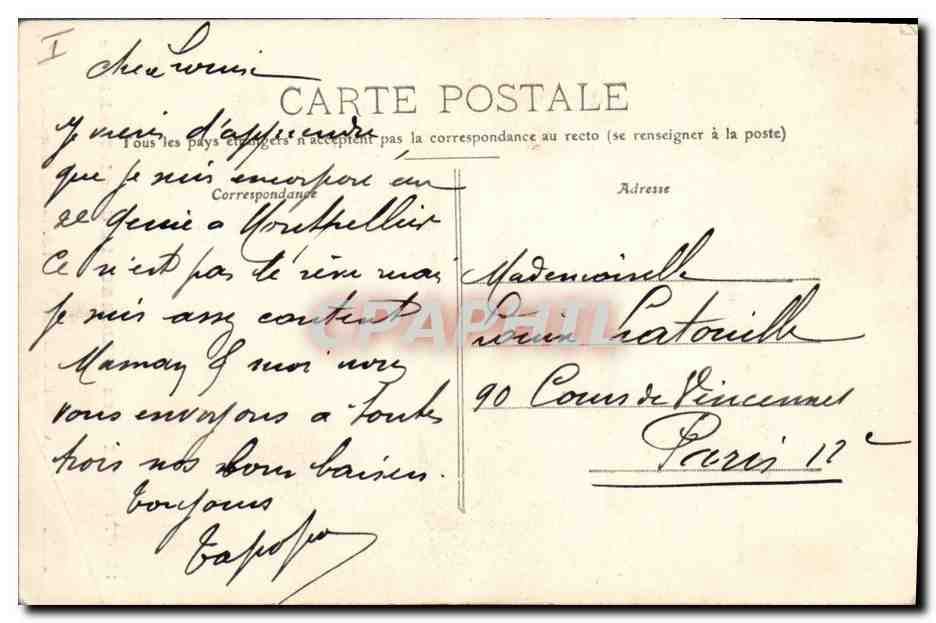 I
Chère Louise
CARTE POSTALE
Je viens d'apprendre
Tous les pays étrangers n'acceptent pas la correspondance au recto (se renseigner à la poste)
que je suis incorporé au
Correspondance
2e Génie à Montpellier
Ce n'est pas le rêve mais
je suis assez content
Maman & moi nous
vous envoyons à toutes
trois nos bons baisers.
Toujours
Adresse
Mademoiselle
Louise Latouille
90 Cours de Vincennes
Paris 12e
CPAPHIL